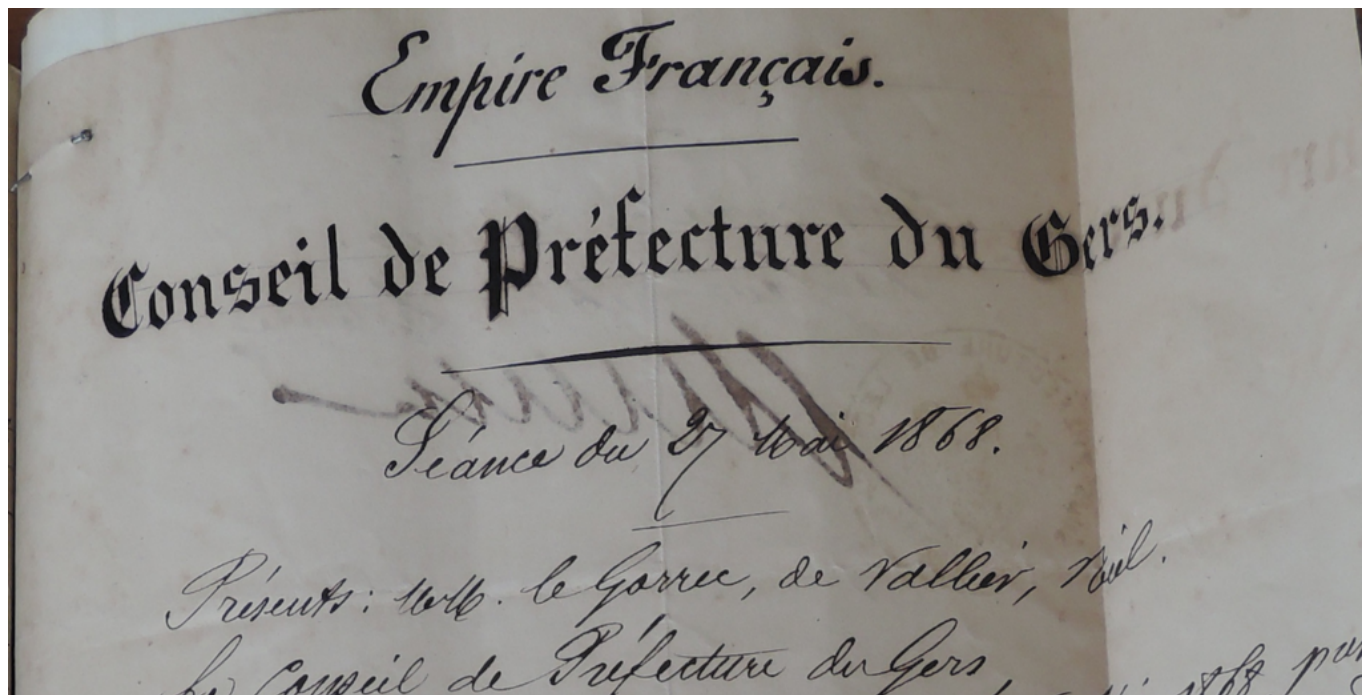 Empire Français.
Conseil de Préfecture du Gers.
Séance du 27 Mai 1868.
Présents: MM. le Gorrec, de Vallier, Niel.
Le Conseil de Préfecture du Gers,
1868 par